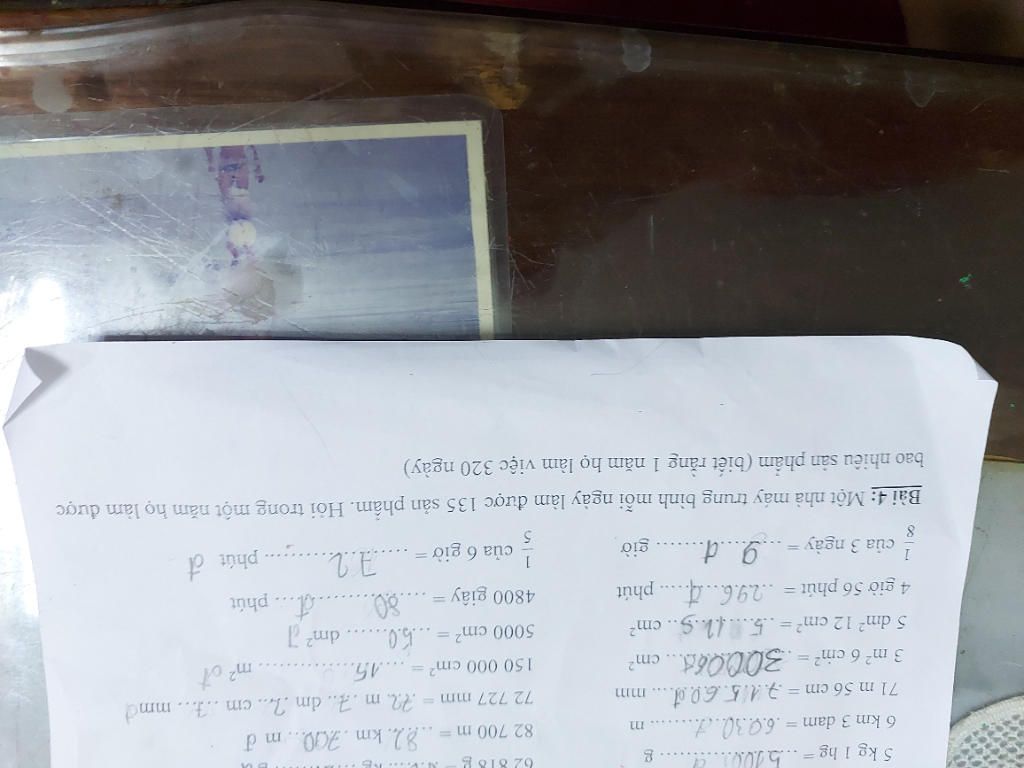 5 kg 1 hg = 5100 đ g 62 818 g = kg g đ
6 km 3 dam = 6030 đ m 82 700 m = 82 km 700 m đ
71 m 56 cm = 71560 đ mm 72 727 mm = 72 m 7 dm 2 cm 7 mm đ
3 m² 6 cm² = 30006 cm² 150 000 cm² = 15 m² đ
5 dm² 12 cm² = 512 cm² 5000 cm² = 50 dm² đ
4 giờ 56 phút = 296 đ phút 4800 giây = 80 đ phút
1/8 của 3 ngày = 9 đ giờ 1/5 của 6 giờ = 72 phút đ
Bài 4: Một nhà máy trung bình mỗi ngày làm được 135 sản phẩm. Hỏi trong một năm họ làm được
bao nhiêu sản phẩm (biết rằng 1 năm họ làm việc 320 ngày)